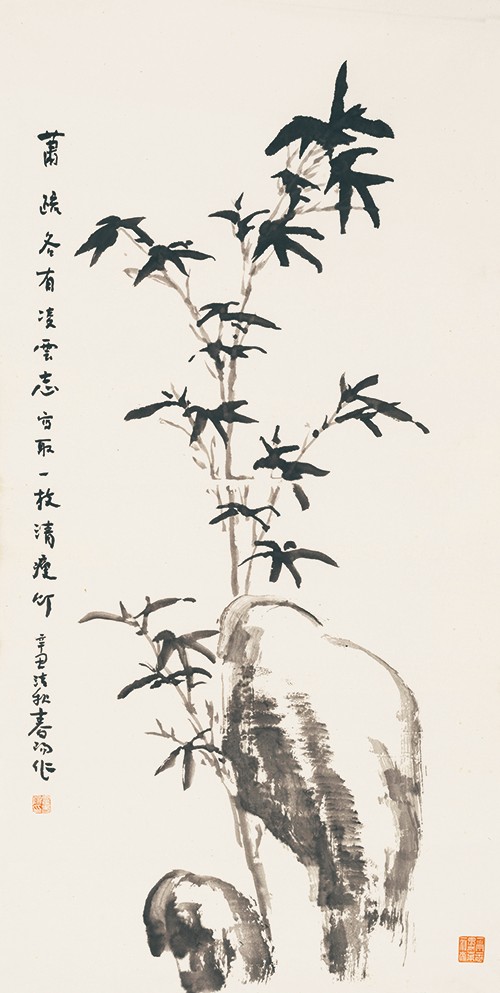 蕭疏各有凌雲志寫取一枝清瘦竹
辛丑清秋春陽作